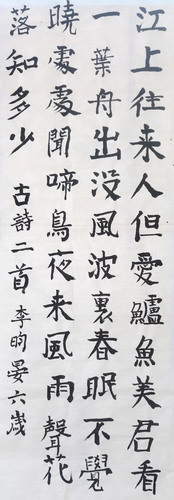 江上往来人但愛鱸魚美君看
一葉舟出没風波裏春眠不覺
曉處處聞啼鳥夜来風雨聲花
落知多少 古詩二首 李昀晏六歲